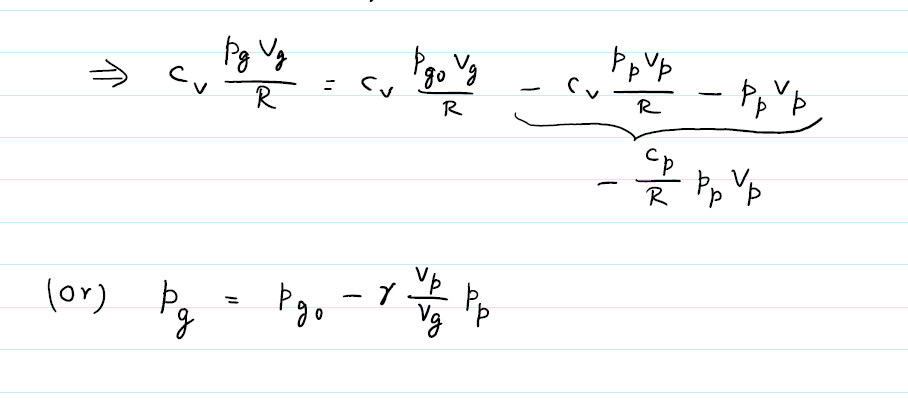 ⇒ c_v p_g V_g / R = c_v p_go V_g / R − c_v p_p V_p / R − p_p V_p
− c_p / R p_p V_p
(or) p_g = p_go − γ V_p / V_g p_p